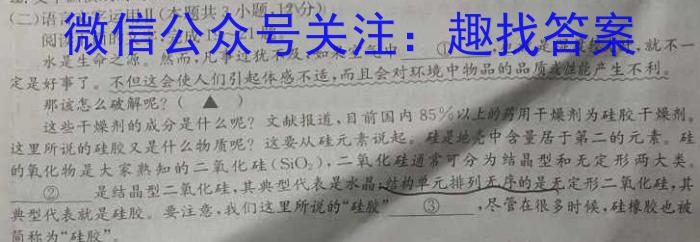 (二)语言文字运用Ⅱ(本题共3小题,12分)
微信公众号关注:趣找答案
阅读下面的
水是生命之源。然而,凡事过犹不及,如果空气中 ① 就不一
定是好事了。不但这会使人们引起体感不适,而且会对环境中物品的品质或性能产生不利。
那该怎么破解呢?( ▲ )
这些干燥剂的成分是什么呢?文献报道,目前国内85%以上的药用干燥剂为硅胶干燥剂。
这里所说的硅胶又是什么物质呢?这要从硅元素说起。硅是地壳中含量居于第二的元素。硅
的氧化物是大家熟知的二氧化硅(SiO₂),二氧化硅通常可分为结晶型和无定形两大类
② 是结晶型二氧化硅,其典型代表是水晶;结构单元排列无序的是无定形二氧化硅,其
典型代表就是硅胶。要注意,我们这里所说的“硅胶” ③ ,尽管在很多时候,硅橡胶也被
简称为“硅胶”。